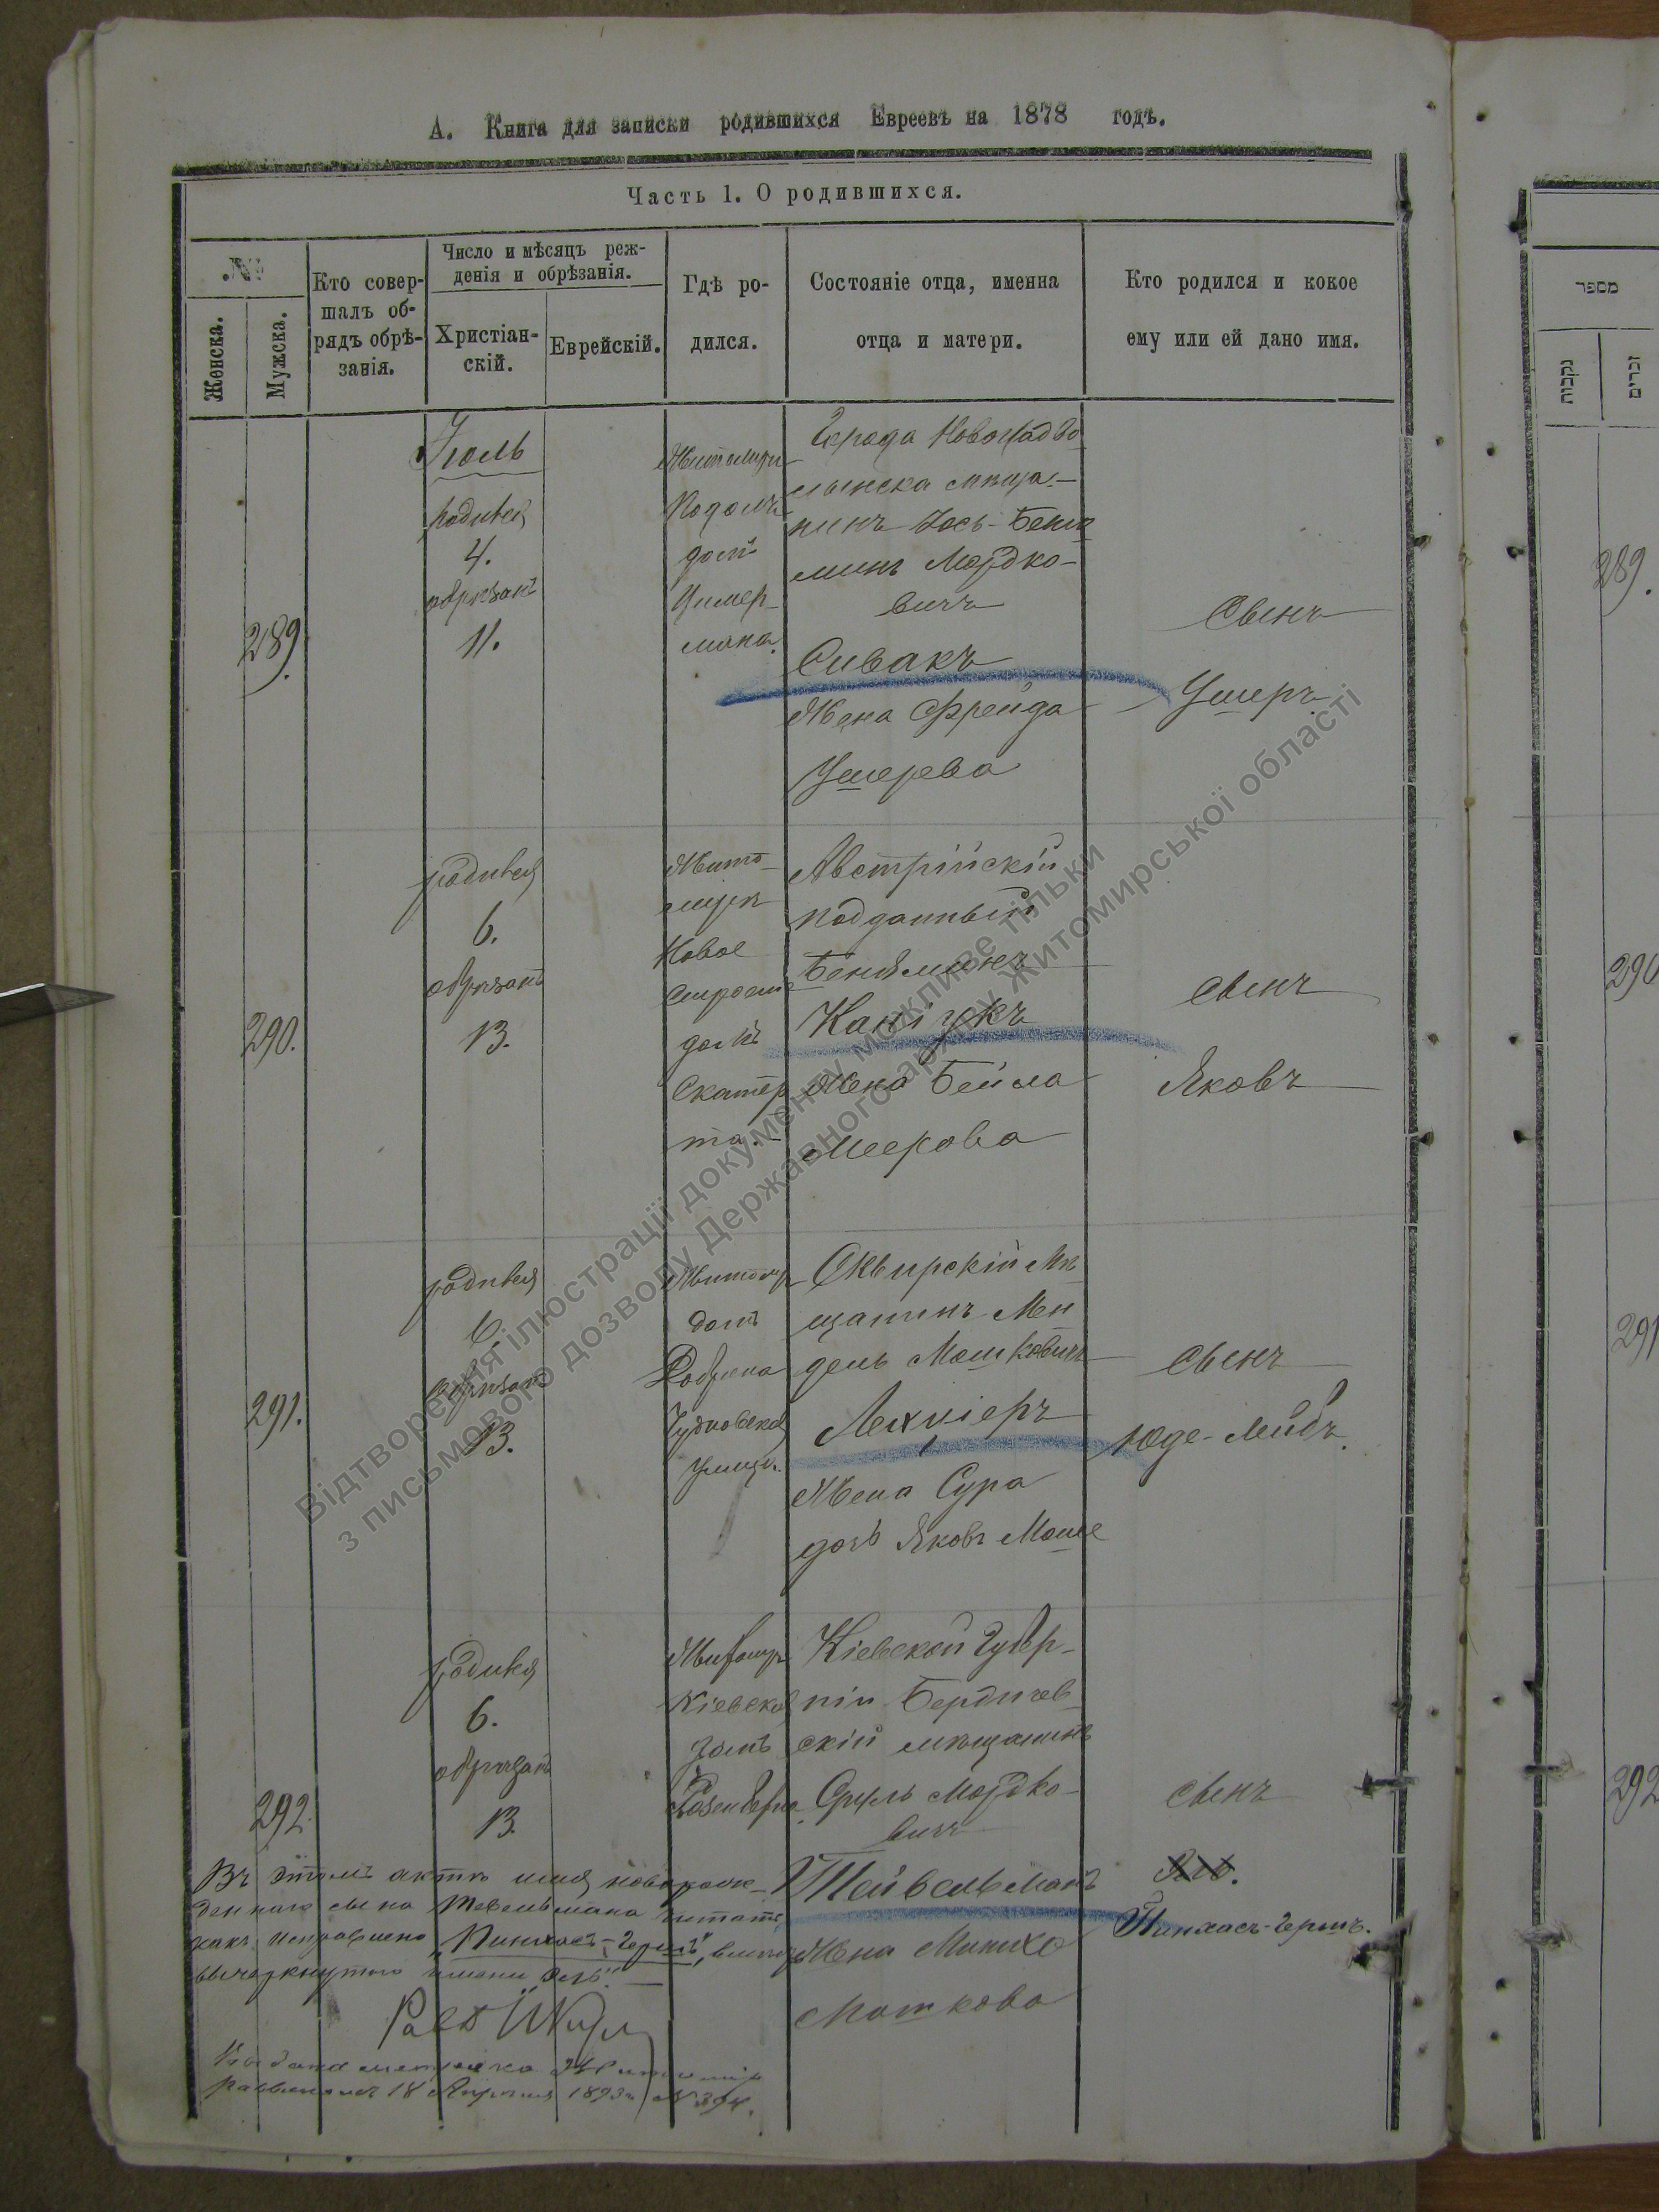 А. Книга для записки родившихся Евреевъ на 1878 годъ.
Часть 1. О родившихся.
№
Женска.
Мужска.
Кто совер-
шалъ об-
рядъ обрѣ-
занія.
Число и мѣсяцъ реж-
денія и обрѣзанія.
Христіан-
скій.
Еврейскій.
Гдѣ ро-
дился.
Состояніе отца, именна
отца и матери.
Кто родился и кокое
ему или ей дано имя.
289.
Іюль
родився
4.
обрѣзанъ
11.
Житомиръ
Подолъ
домъ
Цимер-
мана.
Города Новоградво
лынска мѣща-
нинъ Іось-Беня
минъ Мордко-
вичъ
Сивакъ
Жена Фрейда
Ушерева
Сынъ
Ушеръ
290.
родився
6.
обрѣзанъ
13.
Жито-
миръ
Новое
Строеніе
домъ
Скатер
та.
Австрійскій
подданный
Беняминъ
Канѣукъ
Жена Бейла
Меерова
сынъ
Яковъ
291.
родився
6.
обрѣзанъ
13.
Житомиръ
домъ
Чудновская
улица.
Сквирскій мѣ
щанинъ Мен
дель Мошковичъ
Жена Сура
дочь Яковъ Моше
сынъ
Юде-Лейбъ.
292.
родився
6.
обрѣзанъ
13.
Житомиръ
Кіевская
домъ
Розенберга
Кіевской Губер-
ніи Бердичев
скій мѣщанинъ
Сруль Мордко-
вичъ
Тейвельманъ
Жена Миниха
Мошкова
сынъ
Пинхасъ-Гершъ.
Въ этомъ актѣ имя новорож-
деннаго сына Тевельмана читать
какъ исправлено „Пинхасъ-Гершъ", вмѣсто
вычеркнутаго имени
Выдана метрика Житомір
Раввиномъ 18 Апрѣля 1893 г. №
מספר
נקבות
זכרים
289.
290
291
292
Відтворення ілюстрації документу можливе тільки
з письмового дозволу Державного архіву Житомирської області